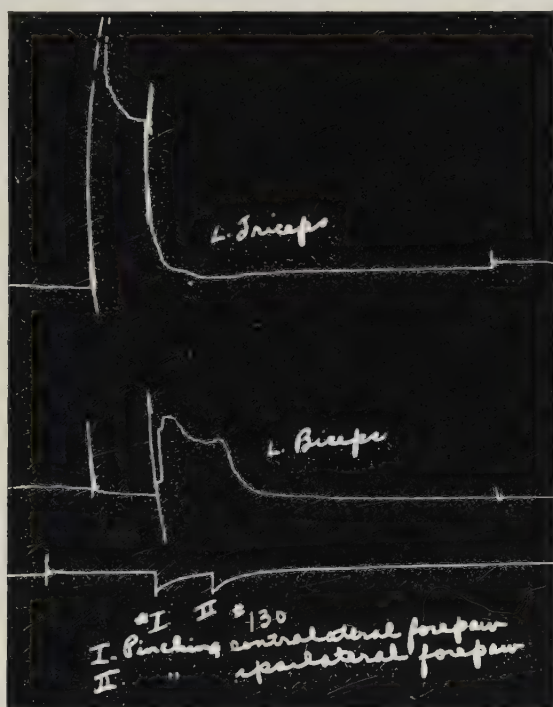 L. Triceps
L. Biceps
#I II #130
I. Pinching contralateral forepaw
II " ipsilateral forepaw